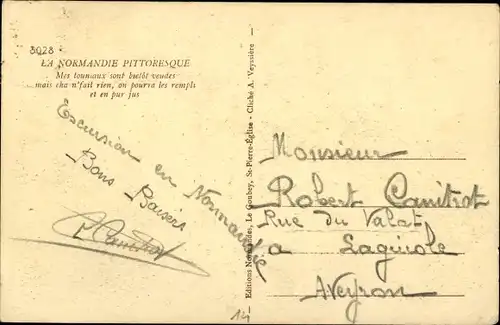 3028
LA NORMANDIE PITTORESQUE
Mes touniaux sont bietôt veudes
mais cha n'fait rien, on pourra les rempli
et en pur jus
Excursion en Normandie
Bons Baisers
Canitrot
Editions Normandes, Le Goubey, St-Pierre-Eglise - Cliché A. Veyssière
Monsieur
Robert Canitrot
Rue du Valat
a Laguiole
Aveyron